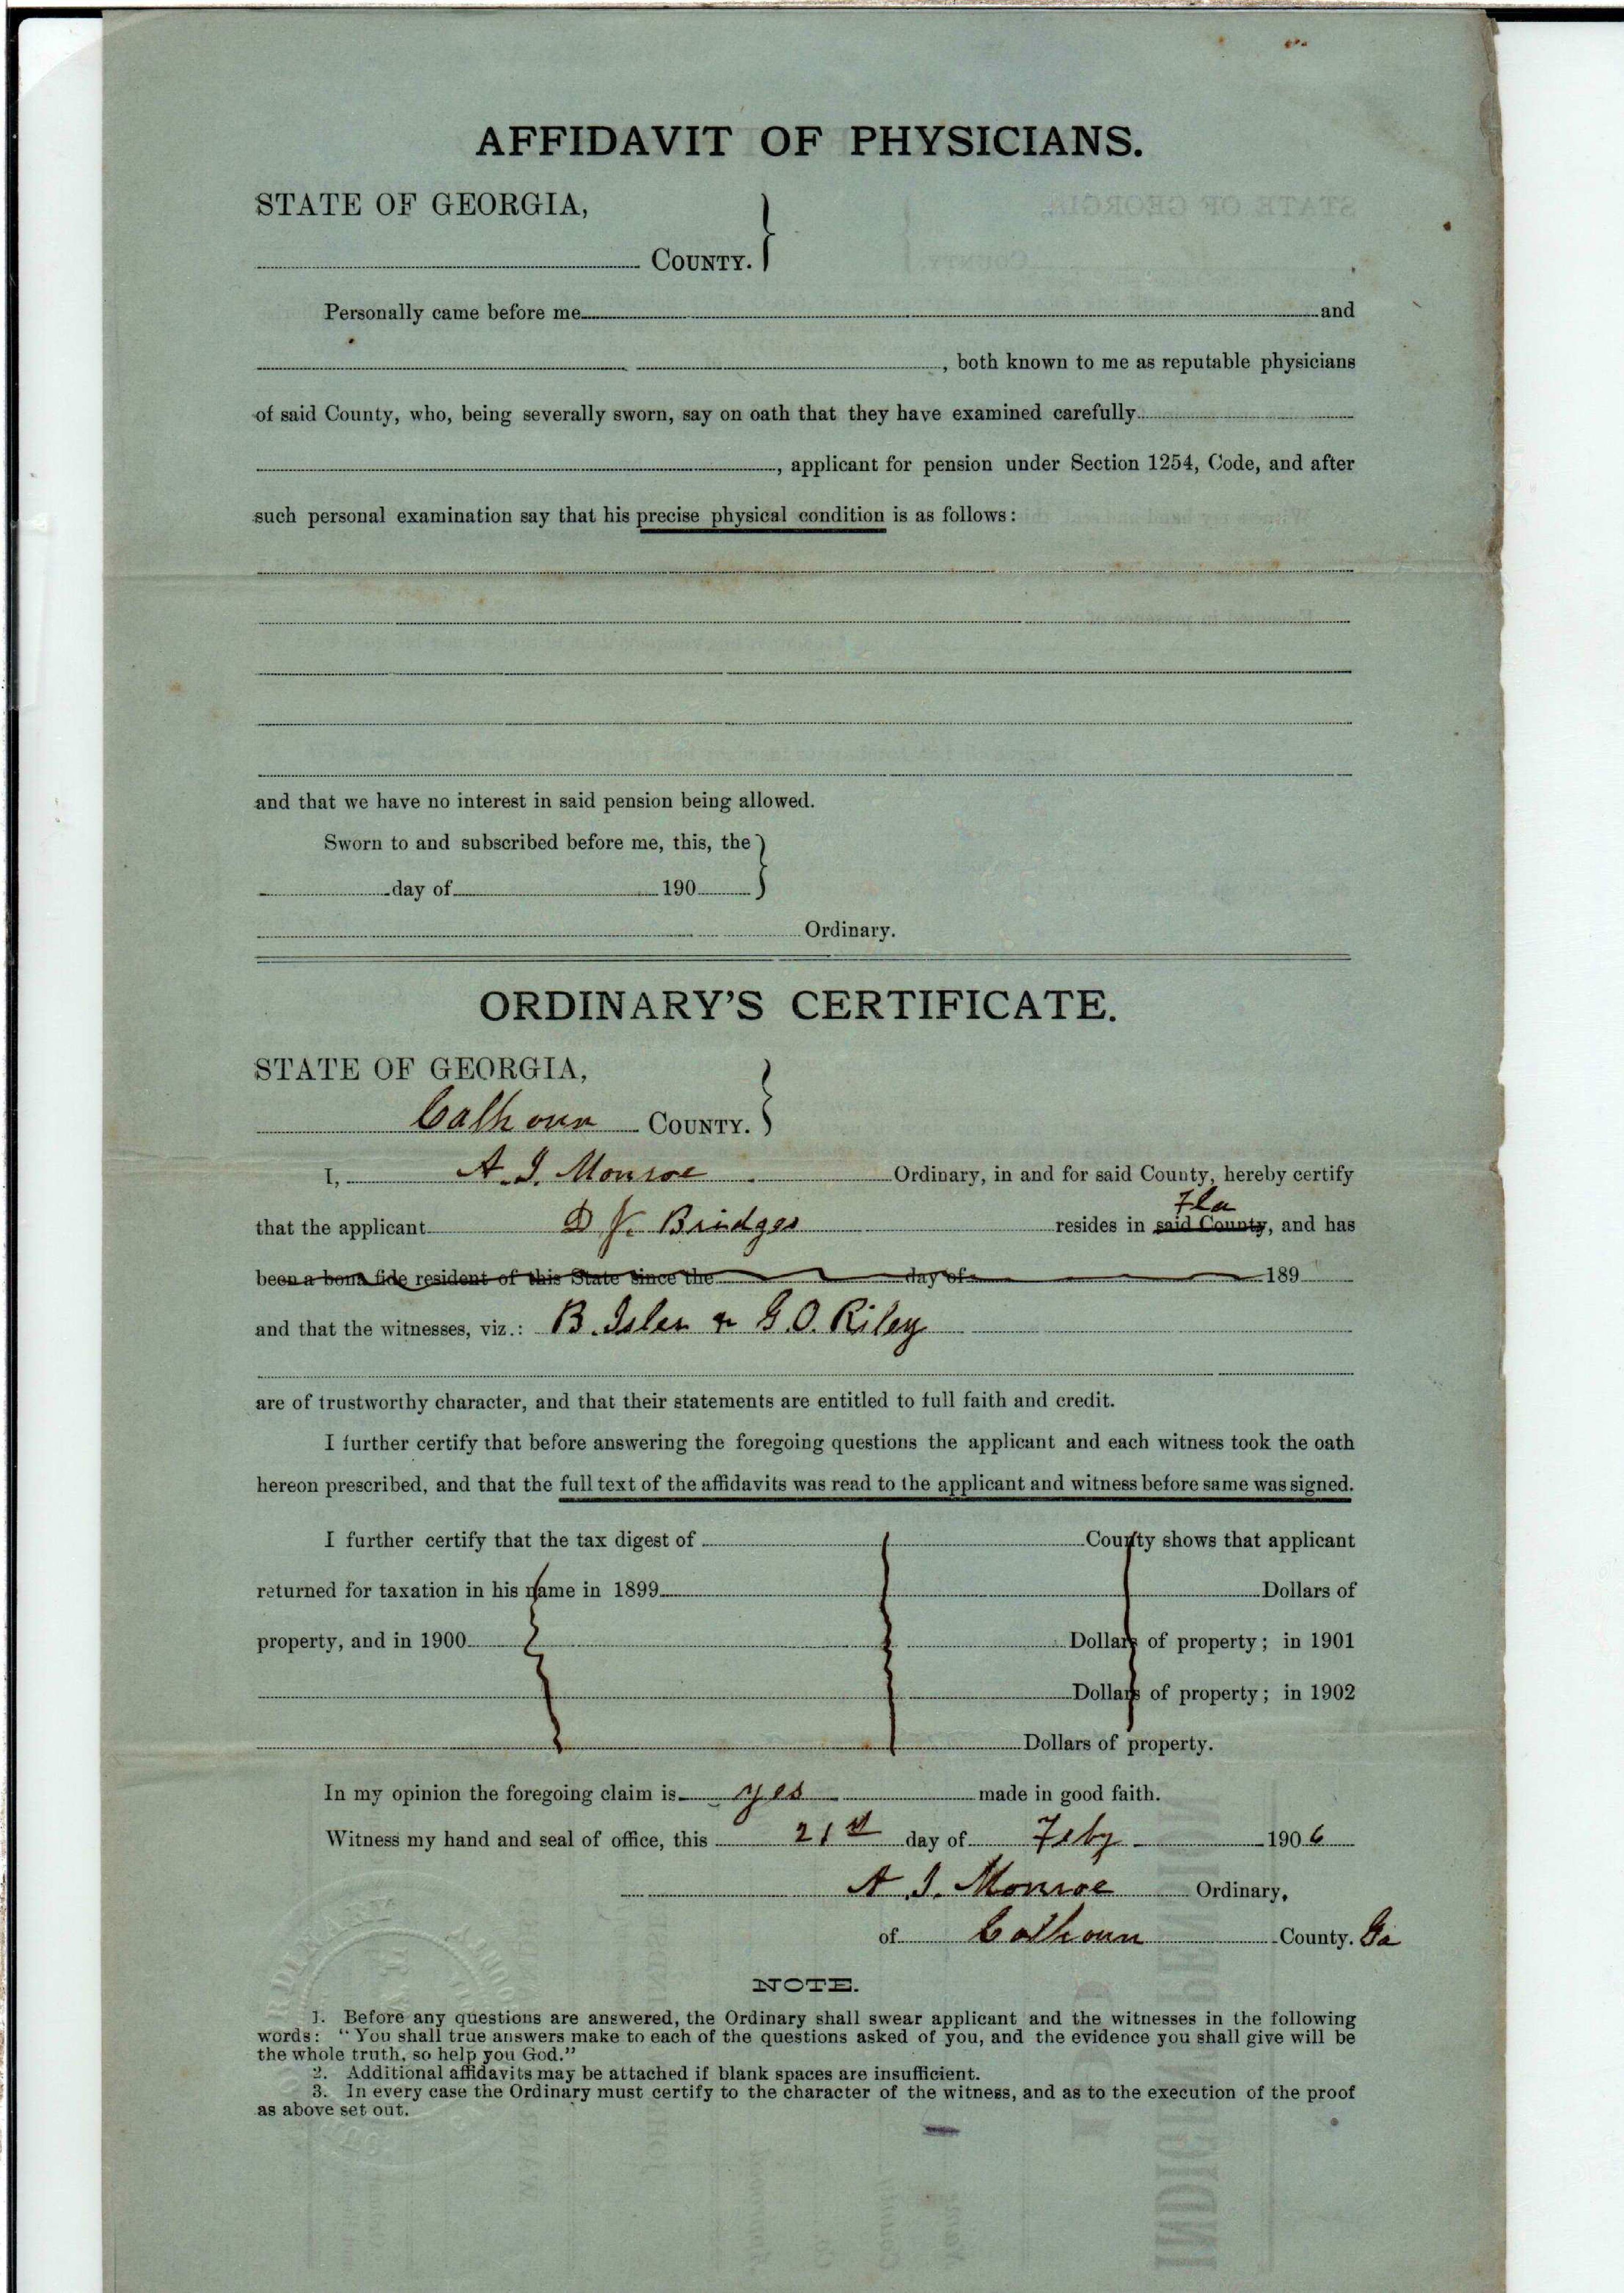 AFFIDAVIT OF PHYSICIANS.
STATE OF GEORGIA,
COUNTY.
Personally came before me and
, both known to me as reputable physicians
of said County, who, being severally sworn, say on oath that they have examined carefully
, applicant for pension under Section 1254, Code, and after
such personal examination say that his precise physical condition is as follows:
and that we have no interest in said pension being allowed.
Sworn to and subscribed before me, this, the
day of 190
Ordinary.
ORDINARY'S CERTIFICATE.
STATE OF GEORGIA,
Calhoun COUNTY.
I, A. J. Monroe Ordinary, in and for said County, hereby certify
Fla
that the applicant D J. Bridges resides in said County, and has
been a bona fide resident of this State since the day of 189
and that the witnesses, viz.: B. Isler & G. O. Riley
are of trustworthy character, and that their statements are entitled to full faith and credit.
I further certify that before answering the foregoing questions the applicant and each witness took the oath
hereon prescribed, and that the full text of the affidavits was read to the applicant and witness before same was signed.
I further certify that the tax digest of County shows that applicant
returned for taxation in his name in 1899 Dollars of
property, and in 1900 Dollars of property; in 1901
Dollars of property; in 1902
Dollars of property.
In my opinion the foregoing claim is yes made in good faith.
Witness my hand and seal of office, this 21st day of Feby 1906
A. J. Monroe Ordinary,
of Calhoun County. Ga
NOTE.
1. Before any questions are answered, the Ordinary shall swear applicant and the witnesses in the following
words: "You shall true answers make to each of the questions asked of you, and the evidence you shall give will be
the whole truth, so help you God."
2. Additional affidavits may be attached if blank spaces are insufficient.
3. In every case the Ordinary must certify to the character of the witness, and as to the execution of the proof
as above set out.